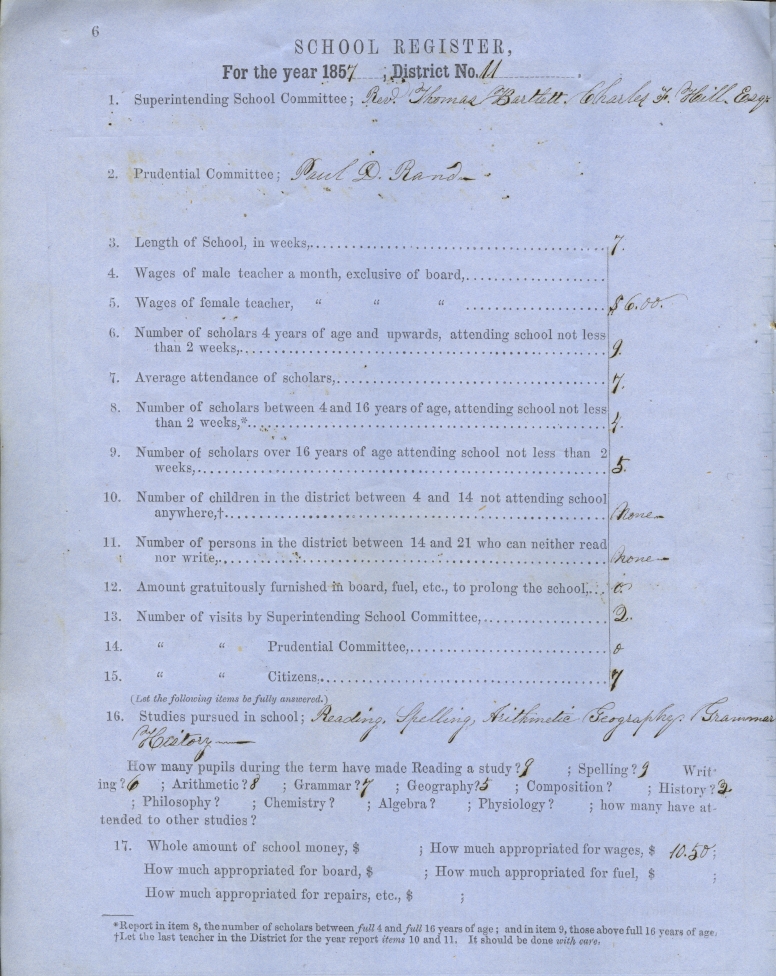 6
SCHOOL REGISTER,
For the year 1857 ; District No. 11 .
1. Superintending School Committee; Rev. Thomas Bartlett. Charles F. Hill. Esq
2. Prudential Committee; Paul D. Rand
3. Length of School, in weeks, 7.
4. Wages of male teacher a month, exclusive of board,
5. Wages of female teacher, " " " $6.00.
6. Number of scholars 4 years of age and upwards, attending school not less
than 2 weeks, 9.
7. Average attendance of scholars, 7.
8. Number of scholars between 4 and 16 years of age, attending school not less
than 2 weeks,* 4.
9. Number of scholars over 16 years of age attending school not less than 2
weeks, 5.
10. Number of children in the district between 4 and 14 not attending school
anywhere,† None
11. Number of persons in the district between 14 and 21 who can neither read
nor write, None
12. Amount gratuitously furnished in board, fuel, etc., to prolong the school, 0.
13. Number of visits by Superintending School Committee, 2.
14. " " Prudential Committee, 0
15. " " Citizens, 7
(Let the following items be fully answered.)
16. Studies pursued in school; Reading, Spelling, Arithmetic Geography. Grammar
History
How many pupils during the term have made Reading a study? 9 ; Spelling? 9 Writ-
ing? 6 ; Arithmetic? 8 ; Grammar? 7 ; Geography? 5 ; Composition? ; History? 2
; Philosophy? ; Chemistry? ; Algebra? ; Physiology? ; how many have at-
tended to other studies?
17. Whole amount of school money, $ ; How much appropriated for wages, $ 10.50;
How much appropriated for board, $ ; How much appropriated for fuel, $ ;
How much appropriated for repairs, etc., $ ;
*Report in item 8, the number of scholars between full 4 and full 16 years of age; and in item 9, those above full 16 years of age.
†Let the last teacher in the District for the year report items 10 and 11. It should be done with care.